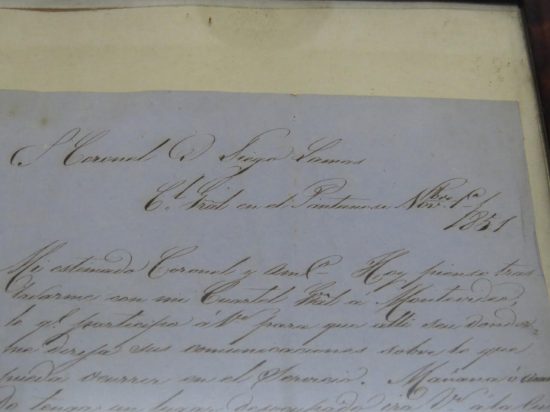 Sr Coronel D. Diego Lamas
Ctl. Gral en el Pantanoso Nove. 1º/1851
Mi estimado Coronel y amº. Hoy pienso tras
ladarme con mi Cuartel Gral á Montevideo,
lo qe. participo á V. para que allí sea donde
me dirija sus comunicaciones sobre lo que
pueda ocurrir en el Servicio. Mañana ó